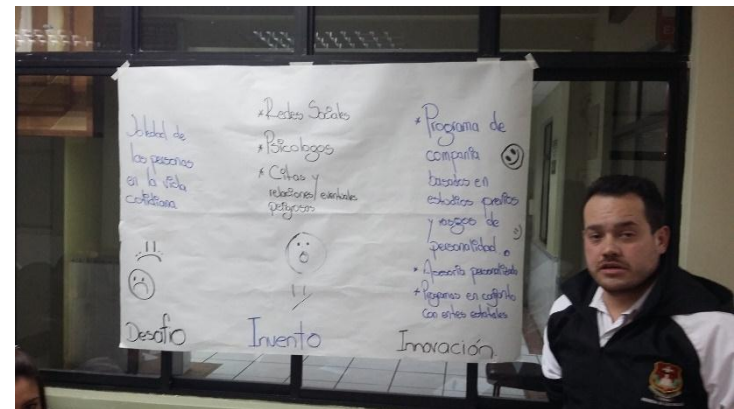 Soledad de
las personas
en la vida
cotidiana
Desafío
* Redes Sociales
* Psicologos
* Citas y
relaciones/ eventuales
peligrosas
Invento
* Programa de
compañía
basados en
estudios previos
y rasgos de
personalidad.
* Asesoría personalizada
* Programas en conjunto
con entes estatales
Innovación